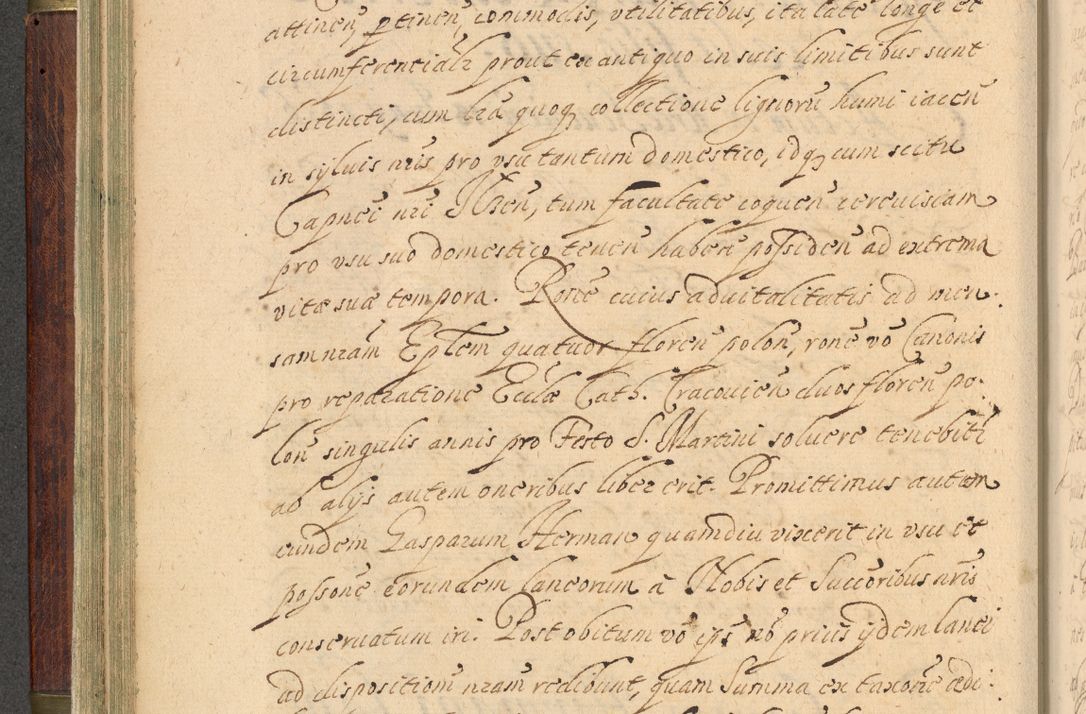 attinen, ptinen, commodis, vtilitatibus, ita late longe et
circumferentialr prout ex antiquo in suis limitibus sunt
distincti, cum lra quoq collectione lignoru humi iacen
in syluis nris pro vsu tantum domestico, idq cum scitu
Capnei nri Ilzen, tum facultate coquen cereuisiam
pro vsu suo domestico tenen haben possiden ad extrema
vitæ suæ tempora. Rone cuius aduitalitatis ad men.
sam nram Eplem quatuor floren polon, rone vo Canonis
pro reparatione Ecclæ Cath. Cracouien duos floren po.
lon singulis annis pro Festo S. Martini soluere tenebitr
ab alijs autem oneribus liber erit. Promittimus autem
eundem Gasparum Herman quamdiu vixerit in vsu et
possone eorundem laneorum a Nobis et Succoribus nris
conseruatum iri. Post obitum vo ips no prius ijdem lanei
ad disposition nram redibunt, quam Summa ex taxone ædi.